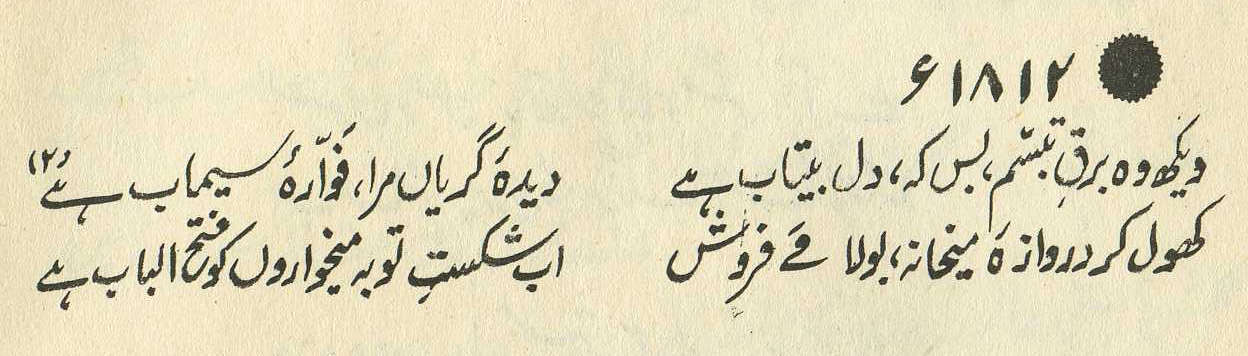 ۱۸۱۲ء
دیکھ وہ برقِ تبسّم، بس کہ، دل بیتاب ہے دیدۂ گریاں مرا، فوّارۂ سیماب ہے (۲)
کھول کر دروازۂ میخانہ، بولا مے فروش اب شکستِ توبہ میخواروں کو فتح الباب ہے